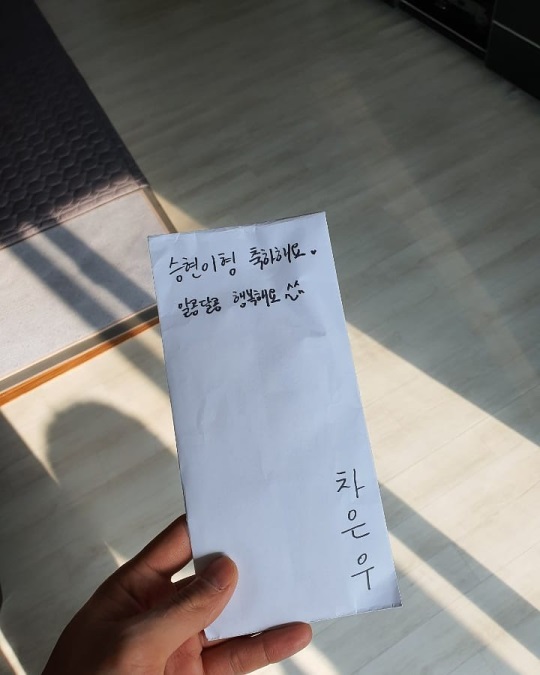 승현이형 축하해요♥
알콩달콩 행복해요 ^^
차은우